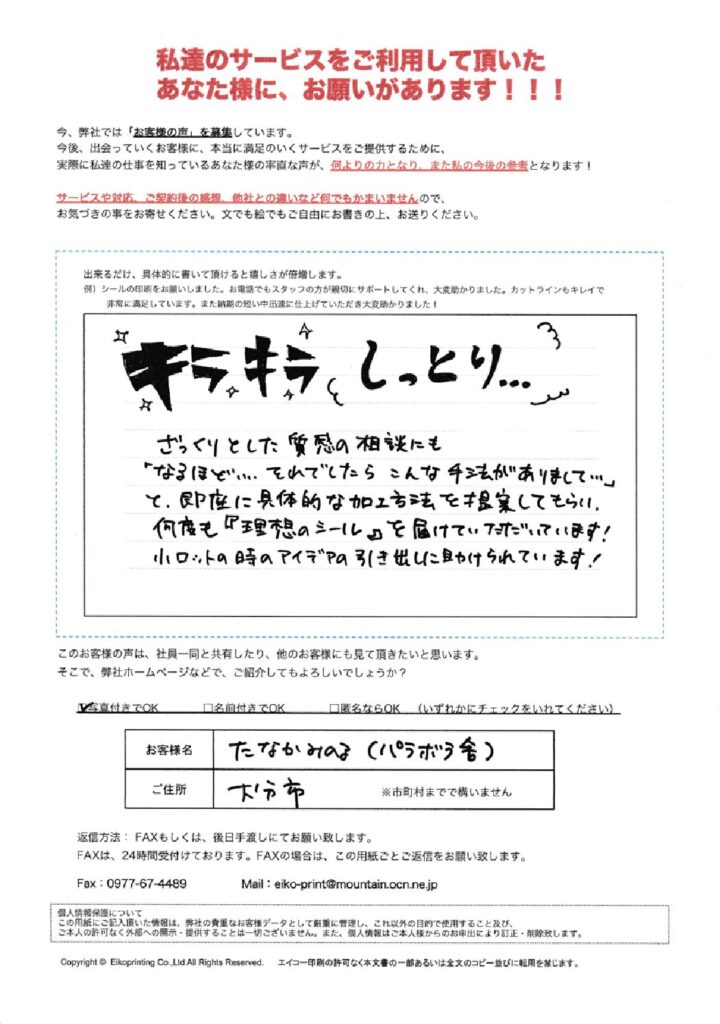 私達のサービスをご利用して頂いた
あなた様に、お願いがあります！！！
今、弊社では「お客様の声」を募集しています。
今後、出会っていくお客様に、本当に満足のいくサービスをご提供するために、
実際に私達の仕事を知っているあなた様の率直な声が、何よりの力となり、また私の今後の参考となります！
サービスや対応、ご契約後の感想、他社との違いなど何でもかまいませんので、
お気づきの事をお寄せください。文でも絵でもご自由にお書きの上、お送りください。
出来るだけ、具体的に書いて頂けると嬉しさが倍増します。
例）シールの印刷をお願いしました。お電話でもスタッフの方が親切にサポートしてくれ、大変助かりました。カットラインもキレイで
非常に満足しています。また納期の短い中迅速に仕上げていただき大変助かりました！
キラキラ しっとり...
ざっくりとした質感の相談にも
「なるほど…. それでしたら こんな手法がありまして…」
と、即座に具体的な加工方法を提案してもらい、
何度も『理想のシール』を届けていただいています！
小ロットの時のアイデアの引き出しに助けられています！
このお客様の声は、社員一同と共有したり、他のお客様にも見て頂きたいと思います。
そこで、弊社ホームページなどで、ご紹介してもよろしいでしょうか？
☑写真付きでOK □名前付きでOK □匿名ならOK （いずれかにチェックをいれてください）
お客様名 たなかみのる（パラボラ舎）
ご住所 大分市 ※市町村までで構いません
返信方法： FAXもしくは、後日手渡しにてお願い致します。
FAXは、24時間受付けております。FAXの場合は、この用紙ごとご返信をお願い致します。
Fax：0977-67-4489 Mail：eiko-print@mountain.ocn.ne.jp
個人情報保護について
この用紙にご記入頂いた情報は、弊社の貴重なお客様データとして厳重に管理し、これ以外の目的で使用すること及び、
ご本人の許可なく外部への開示・提供することは一切ございません。また、個人情報はご本人様からのお申出により訂正・削除致します。
Copyright © Eikoprinting Co.,Ltd All Rights Reserved. エイコー印刷の許可なく本文書の一部あるいは全文のコピー並びに転用を禁じます。